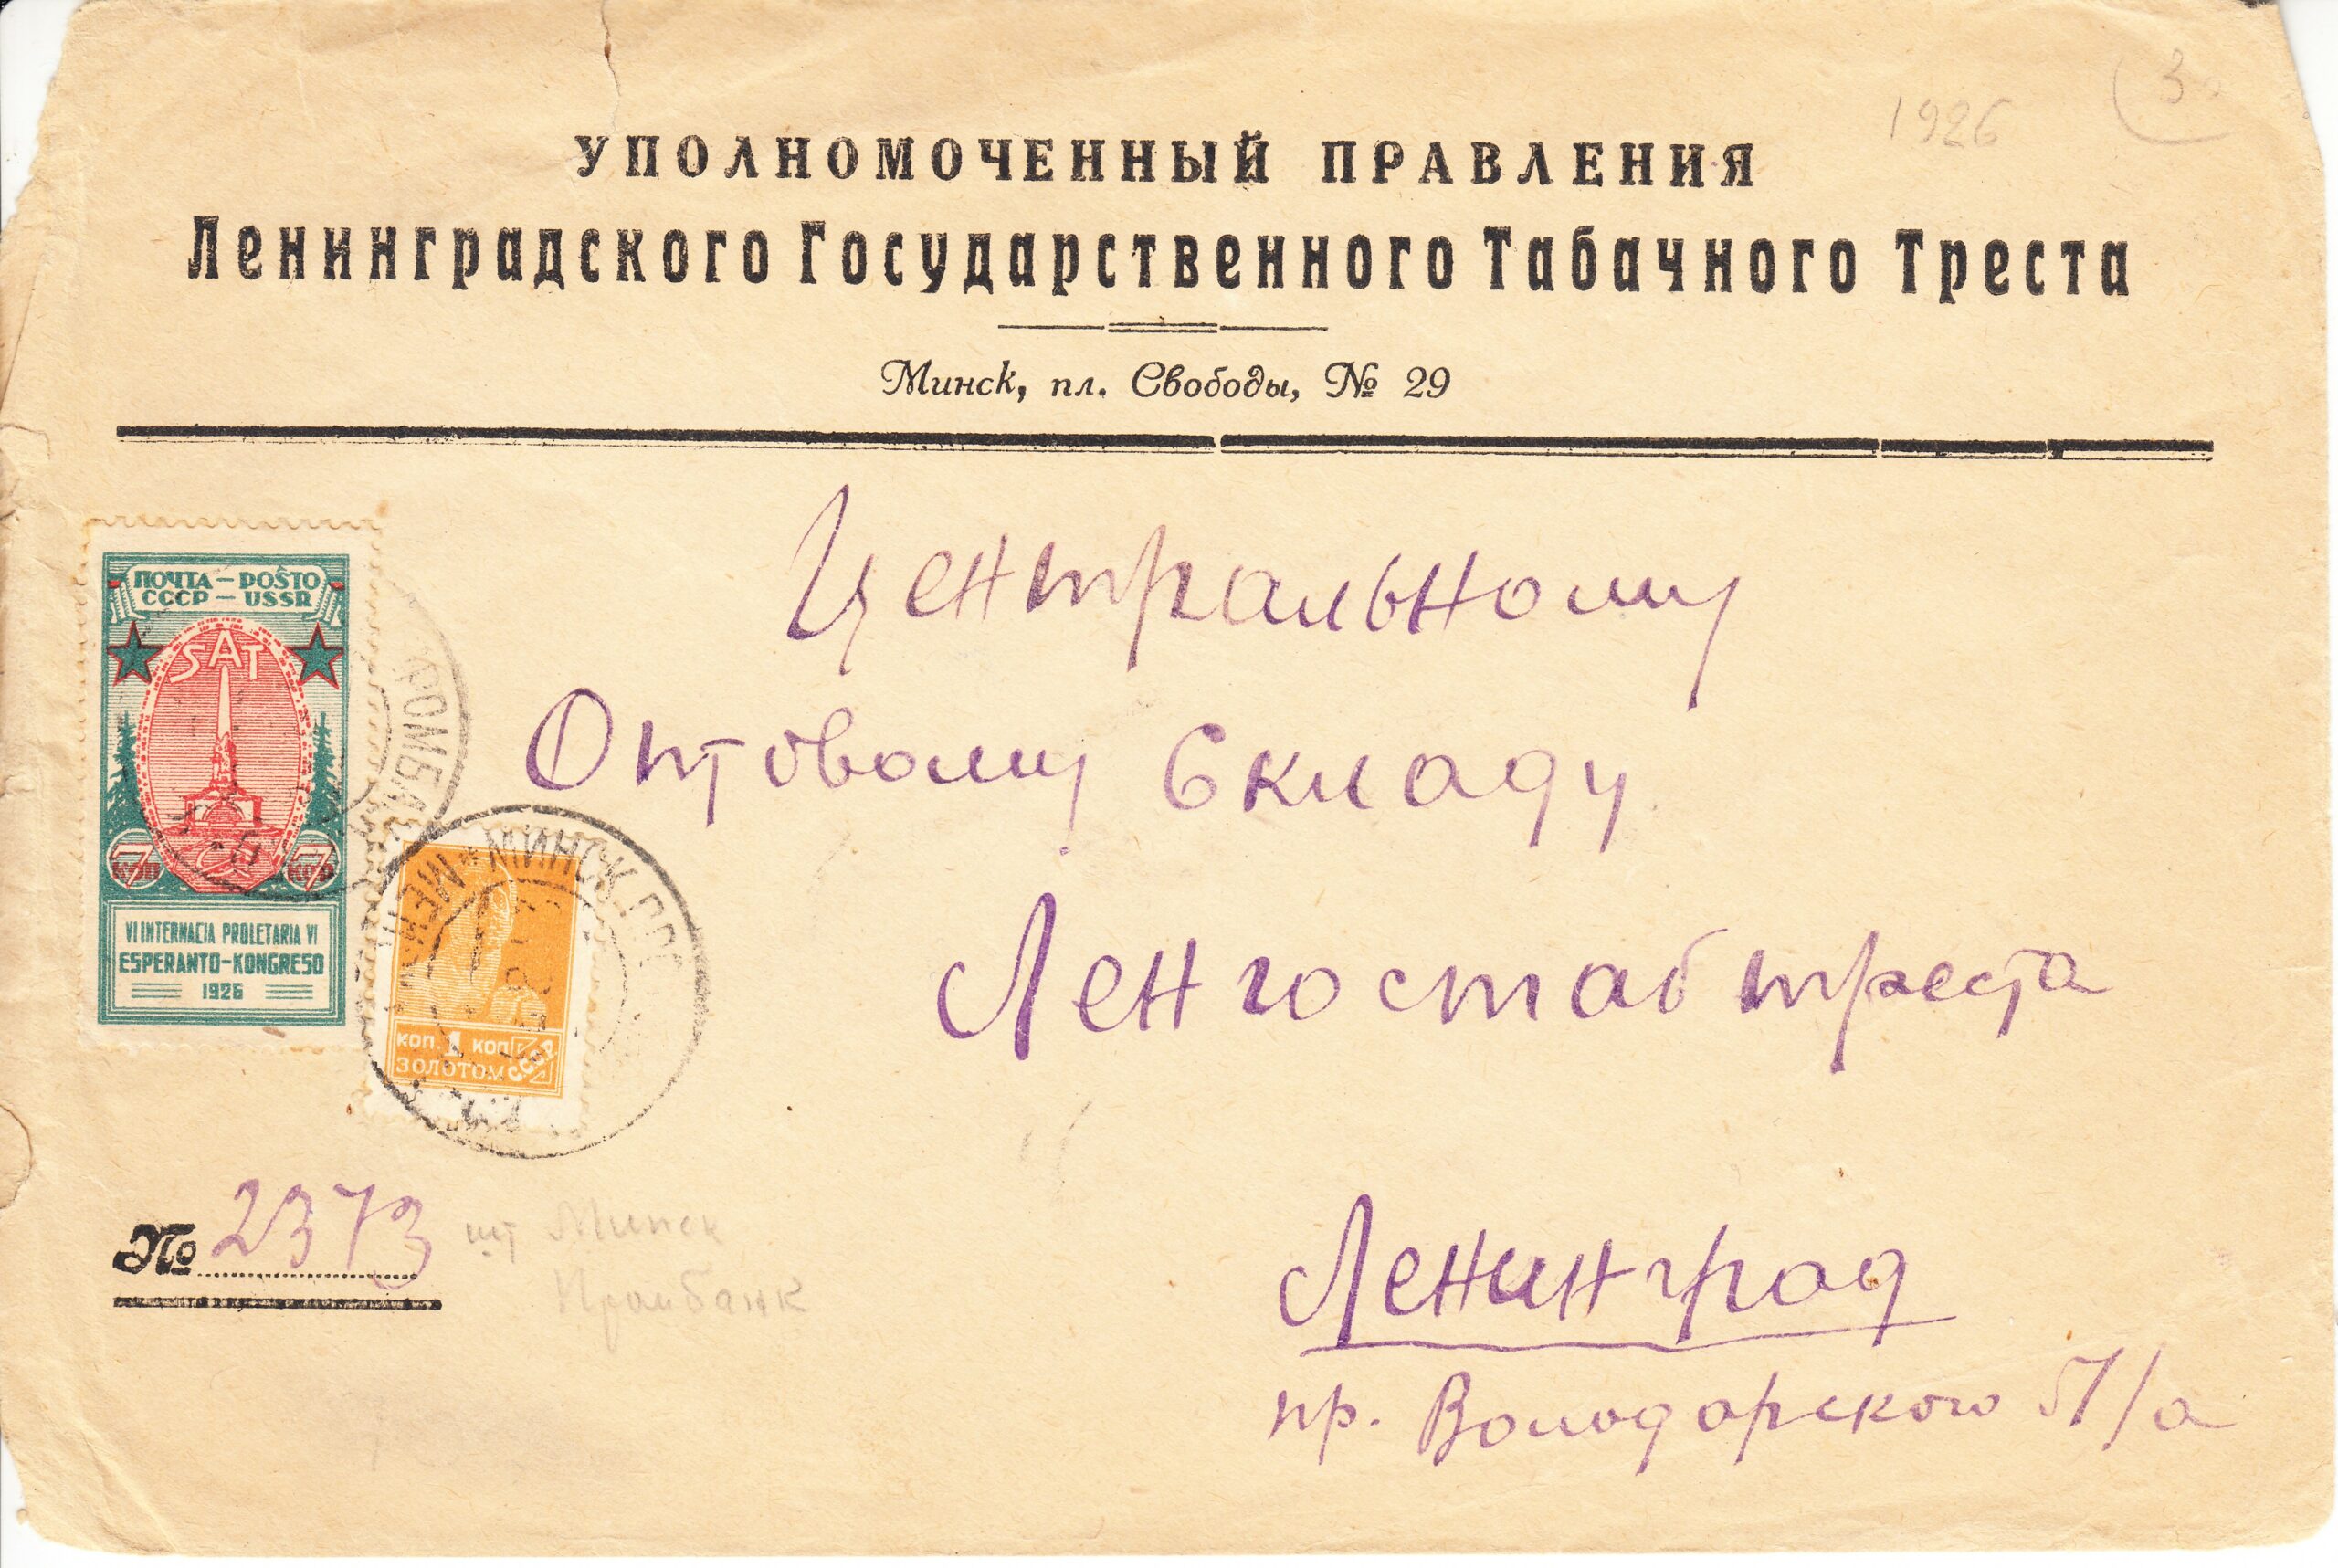 1926
3
УПОЛНОМОЧЕННЫЙ ПРАВЛЕНИЯ
Ленинградского Государственного Табачного Треста
Минск, пл. Свободы, № 29
Центральному
Оптовому Складу
Ленгостабтреста
Ленинград
пр. Володарского 57/а
ПОЧТА — POŜTO
СССР — USSR
SAT
7 КОП
7 KOP
VI INTERNACIA PROLETARIA VI
ESPERANTO-KONGRESO
1926
РОМБАН
МИНСК
КОП. 1 КОП
ЗОЛОТОМ СССР
№ 2373
шт Минск
Промбанк